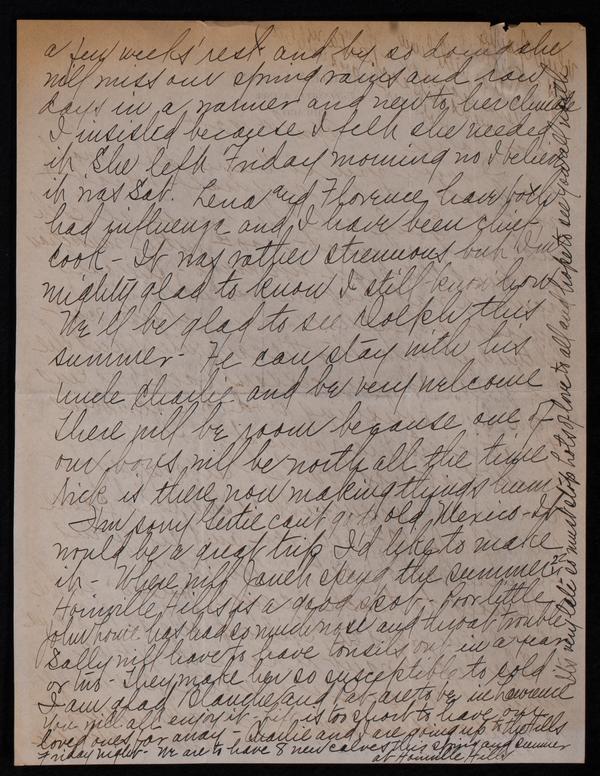 a few weeks' rest and by so doing she
will miss our spring rains and raw
days in a warmer and new to her climate
I insisted because I felt she needed
it. She left Friday morning no I believe
it was Sat. Lena and Florence have both
had influenza and I have been chief
cook - It was rather strenuous but I'm
mighty glad to know I still know how
We'll be glad to see Dolph this
summer - He can stay with his
Uncle Charlie and be very welcome
There will be room because one of
our boys will be north all the time
Nick is there now making things hum
I'm sorry Gertie can't go to old Mexico - It
would be a great trip I'd like to make
it - Where will Janett spend the summer?
Hoinville Hills is a good spot - Poor little
John Howie has had so much nose and throat trouble
Sally will have to have tonsils out in a year
or two - They make her so susceptible to cold
I am glad Blanche and Pat are to be in
You will all enjoy it - is too short to have our
loved ones far away - Charlie and I are going up to the Hills
Friday night - We are to have 8 new calves this spring and summer
at Hoinville Hills
It's very late so must stop Lots of love to all and hope to see you all